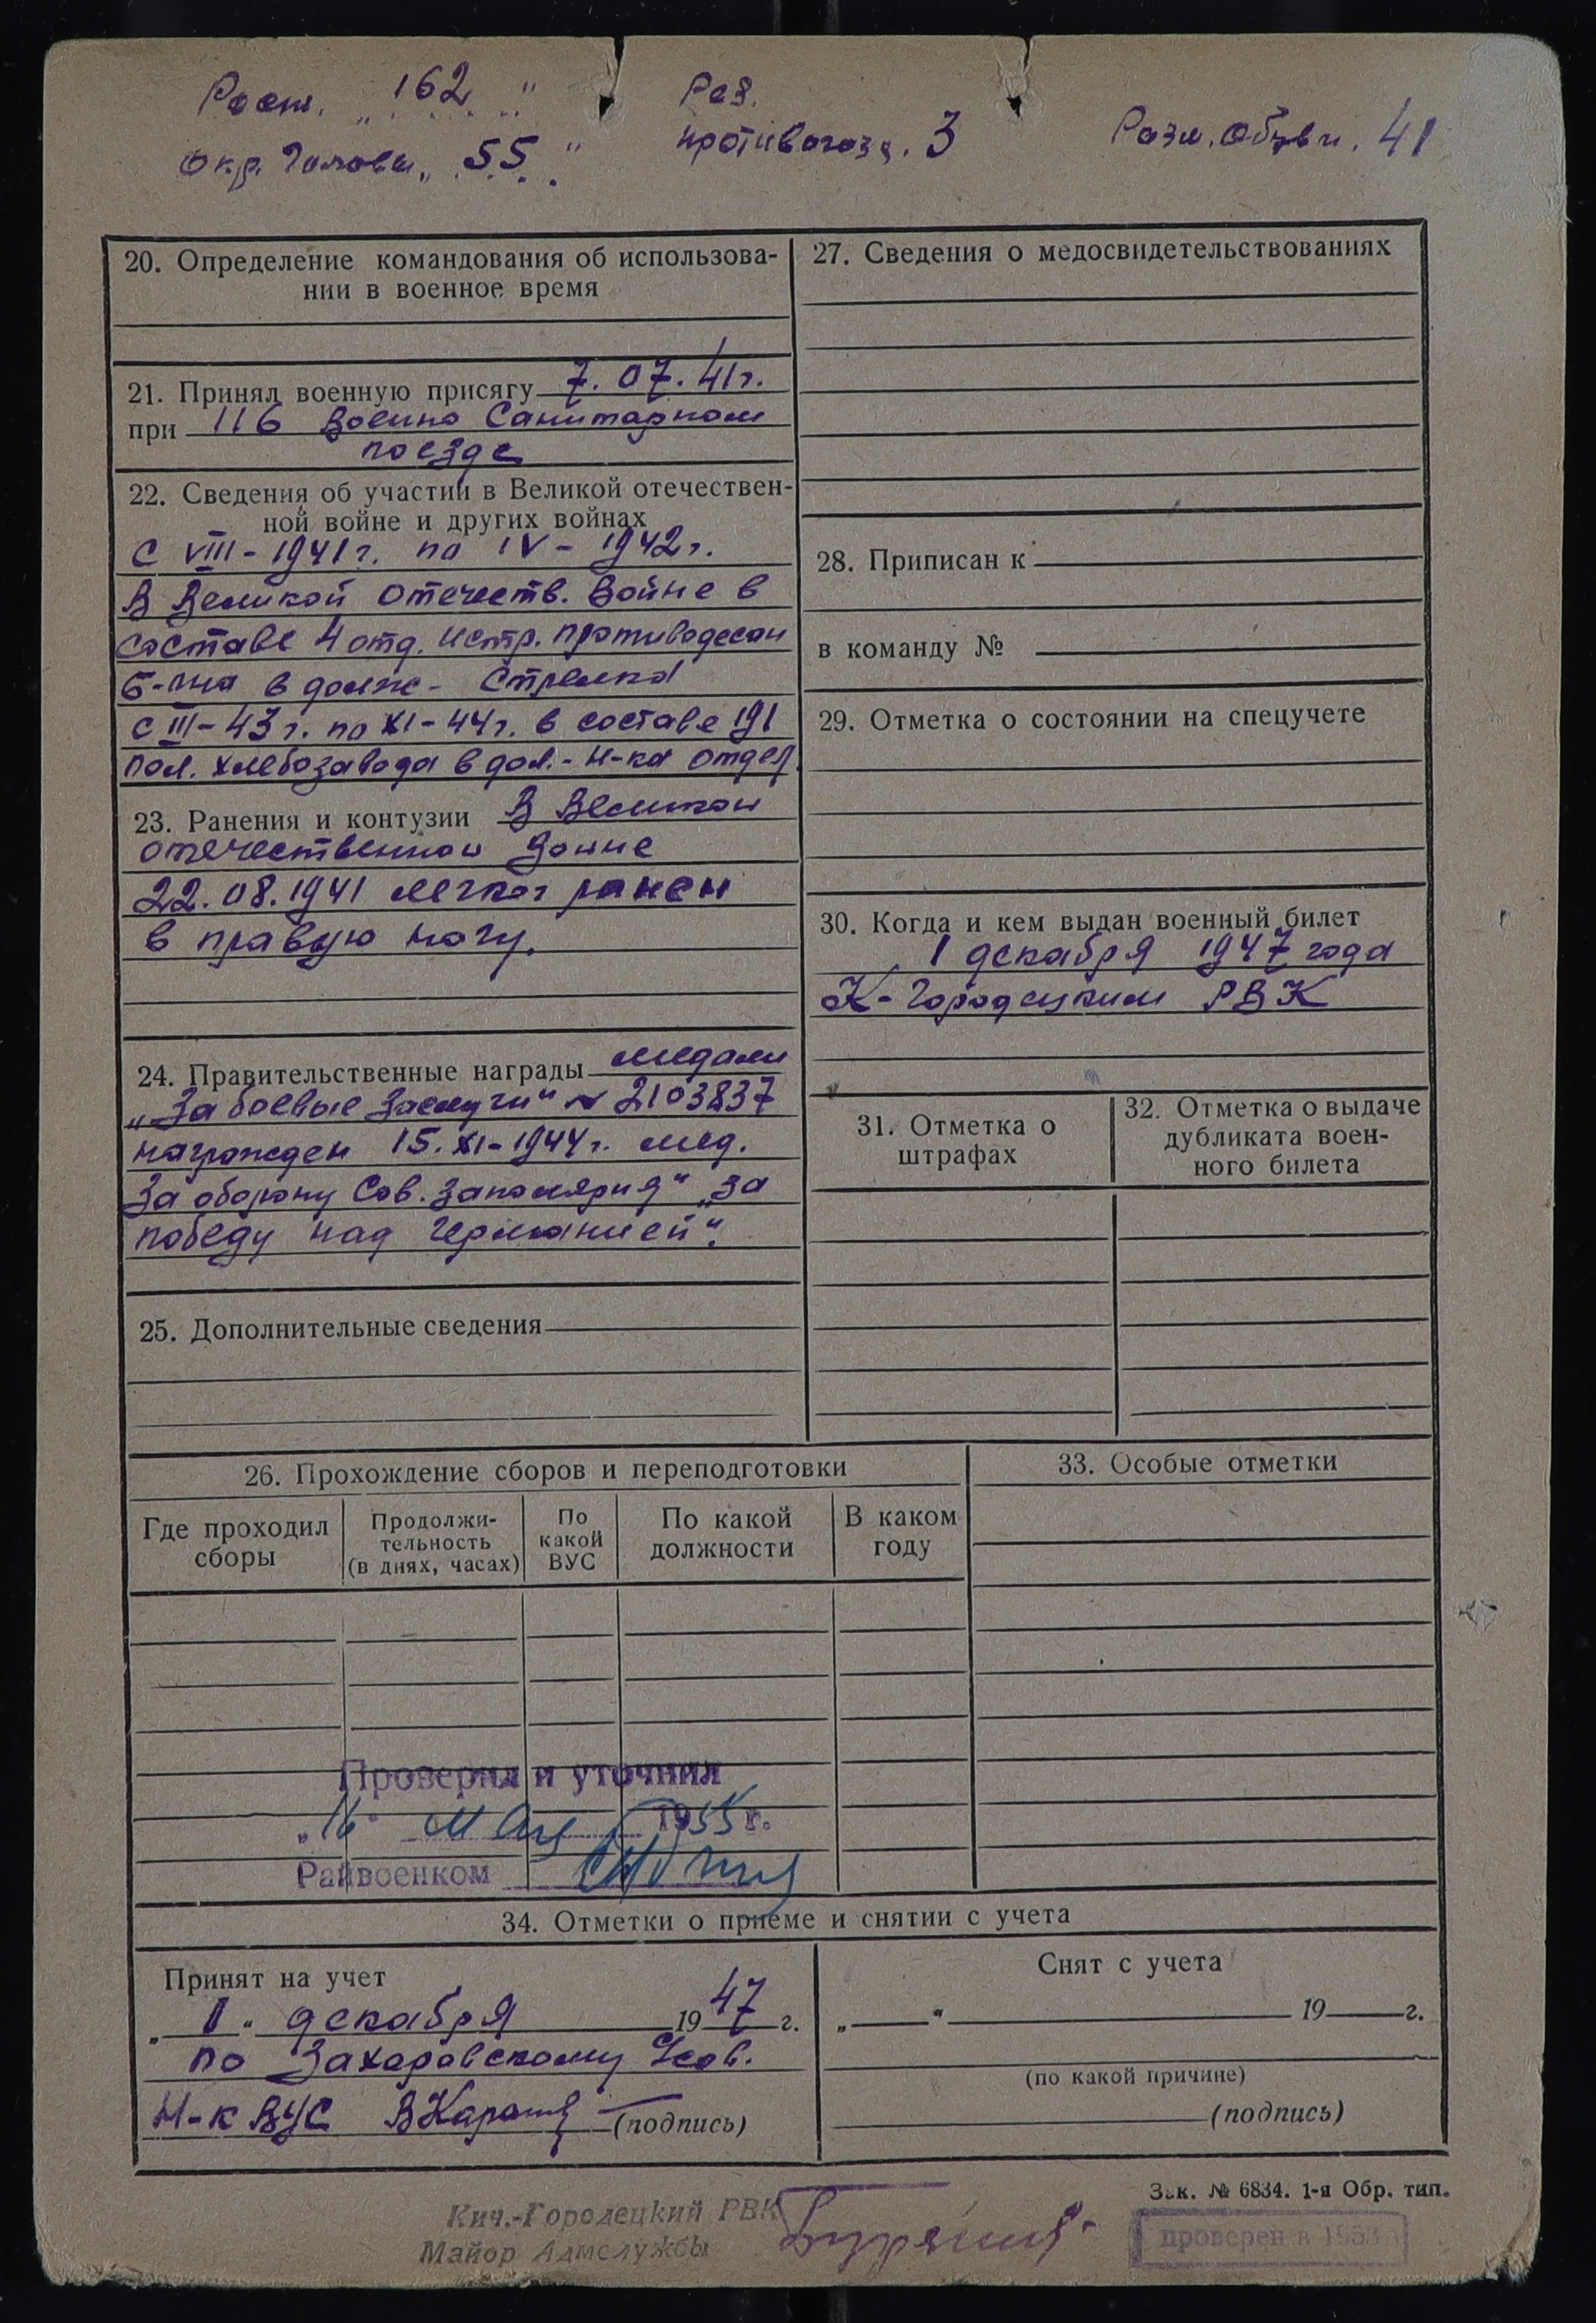 Рост. „162"
Раз.
противогаза. 3
Разм. обуви. 41
Окр. головы „55"
20. Определение командования об использова-
нии в военное время
21. Принял военную присягу 7.07.41г.
при 116 Военно Санитарном
поезде
22. Сведения об участии в Великой отечествен-
ной войне и других войнах
С VIII-1941г. по IV-1942г.
В Великой отечеств. Войне в
составе 4 отд. истр. противодесан
б-на в долж- Стрелка
с III-43г. по XI-44г. в составе 191
пол. хлебозавода в дол.- Н-ка отдел.
23. Ранения и контузии В Великой
отечественной Войне
22.08.1941 легко ранен
в правую ногу.
24. Правительственные награды медали
„За боевые Заслуги" № 2103837
награжден 15.XI-1944г. мед.
За оборону Сов. Заполярия" „За
победу над Германией".
25. Дополнительные сведения
27. Сведения о медосвидетельствованиях
28. Приписан к
в команду №
29. Отметка о состоянии на спецучете
30. Когда и кем выдан военный билет
1 декабря 1947 года
К-Городецким РВК
31. Отметка о
штрафах
32. Отметка о выдаче
дубликата воен-
ного билета
26. Прохождение сборов и переподготовки
Где проходил
сборы
Продолжи-
тельность
(в днях, часах)
По
какой
ВУС
По какой
должности
В каком
году
33. Особые отметки
Проверил и уточнил
„16" мая 1955 г.
Райвоенком
34. Отметки о приеме и снятии с учета
Принят на учет
„1" декабря 1947 г.
по Захаровскому
Н-к ВУС (подпись)
Снят с учета
„ " 19 г.
(по какой причине)
(подпись)
Зак. № 6834. 1-я Обр. тип.
Кич.-Городецкий РВК
Майор Адмслужбы
проверен в 1953